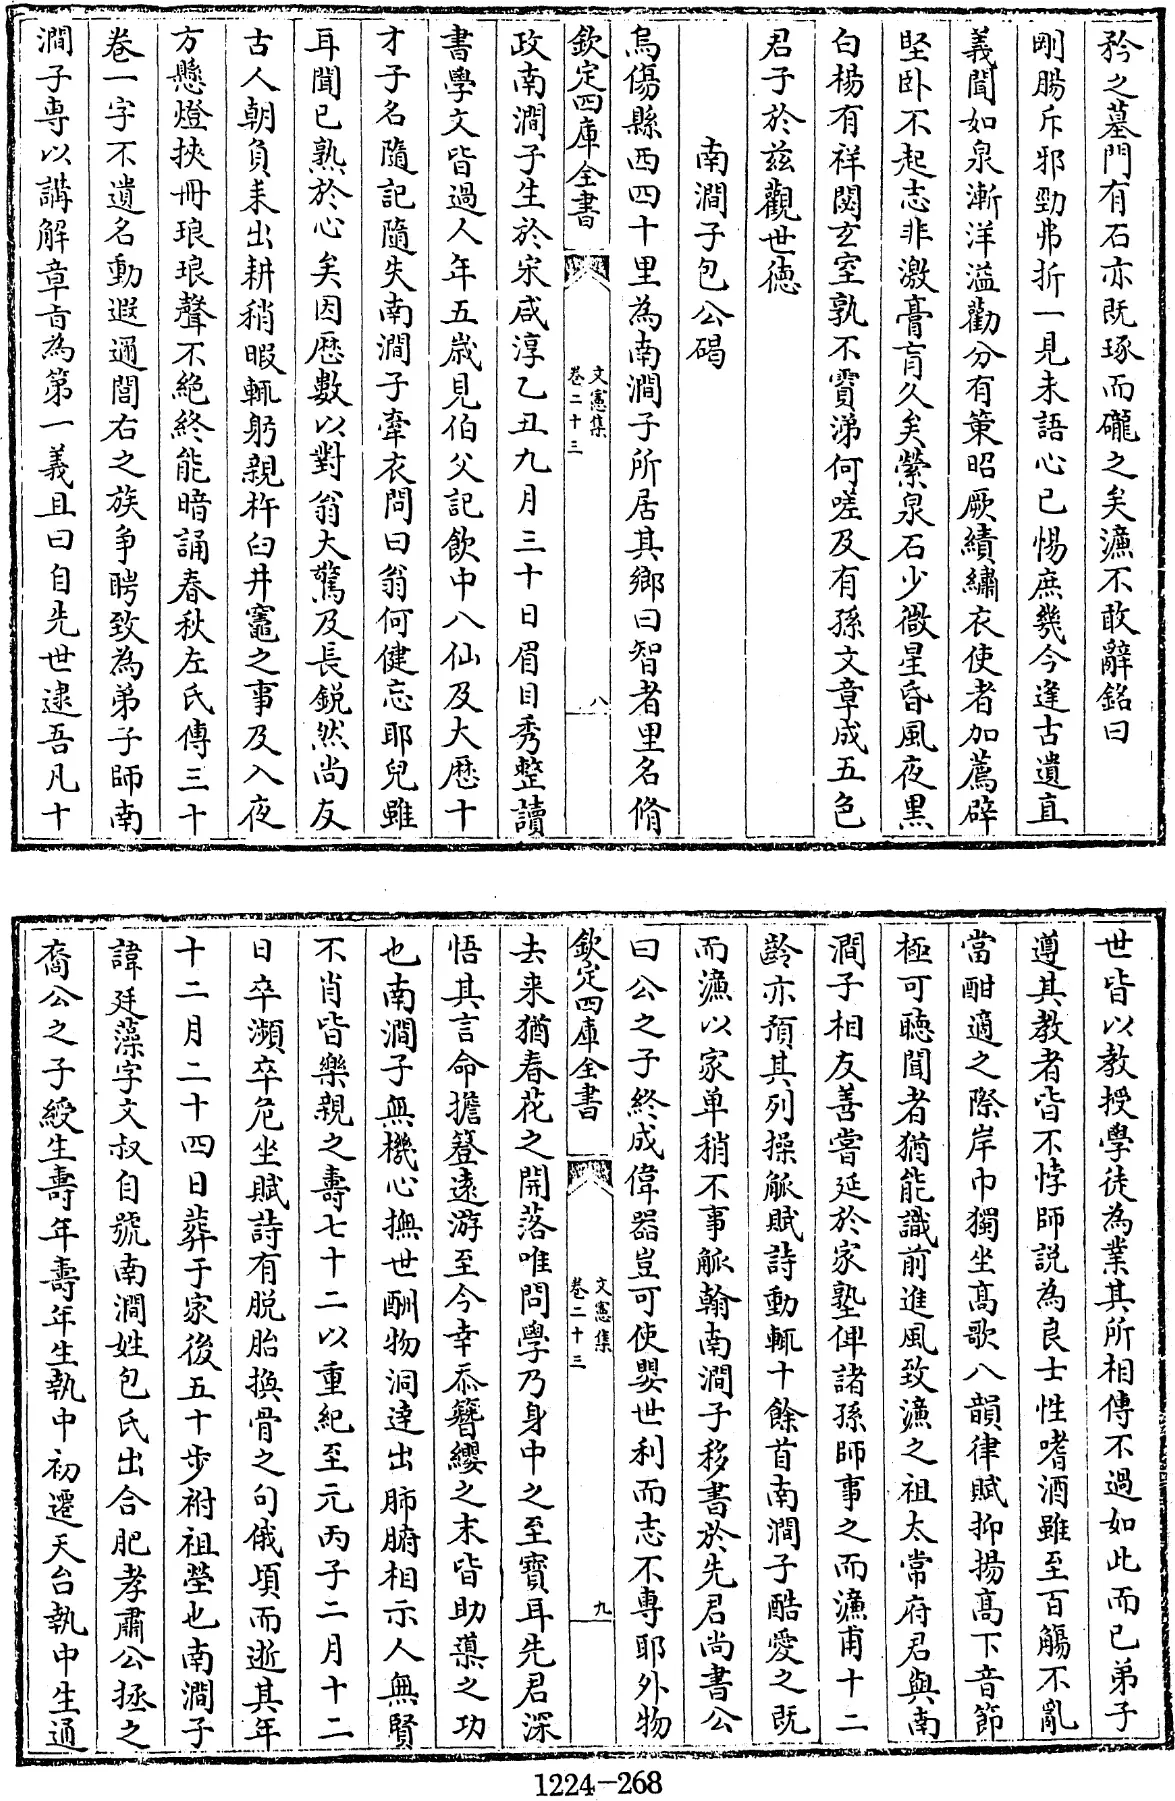 矜之墓門有石亦既琢而礲之矣濂不敢辭銘曰
剛腸斥邪勁弗折一見未語心已惕庶幾今逢古遺直
義聞如泉漸洋溢勸分有策昭厥績繡衣使者加薦辟
堅卧不起志非激膏肓久矣縈泉石少微星昏風夜黒
白楊有祥閟玄室孰不賈涕何嗟及有孫文章成五色
君子於兹觀世徳
南澗子包公碣
烏傷縣西四十里為南澗子所居其鄉曰智者里名脩
欽定四庫全書
文憲集
卷二十三
八
政南澗子生於宋咸淳乙丑九月三十日眉目秀整讀
書學文皆過人年五歳見伯父記飲中八仙及大厯十
才子名隨記隨失南澗子牽衣問曰翁何健忘耶兒雖
耳聞已熟於心矣因厯數以對翁大驚及長鋭然尚友
古人朝負耒出耕稍暇輒躬親杵臼井竈之事及入夜
方懸燈挾冊琅琅聲不絶終能暗誦春秋左氏傳三十
巻一字不遺名動遐邇閭右之族争聘致為弟子師南
澗子専以講解章㫖為第一義且曰自先世逮吾凡十
世皆以教授學徒為業其所相傳不過如此而已弟子
遵其教者皆不悖師説為良士性嗜酒雖至百觴不亂
當酣適之際岸巾獨坐髙歌八韻律賦抑揚髙下音節
極可聴聞者猶能識前進風致濂之祖太常府君與南
澗子相友善嘗延於家塾俾諸孫師事之而濂甫十二
齡亦預其列操觚賦詩動輒十餘首南澗子酷愛之既
而濂以家单稍不事觚翰南澗子移書於先君尚書公
曰公之子終成偉器豈可使嬰世利而志不専耶外物
欽定四庫全書
文憲集
卷二十三
九
去来猶春花之開落唯問學乃身中之至寶耳先君深
悟其言命擔簦逺游至今幸忝簪纓之末皆助𨗳之功
也南澗子無機心撫世酬物洞達出肺腑相示人無賢
不肖皆樂親之壽七十二以重紀至元丙子二月十二
日卒瀕卒危坐賦詩有脱胎換骨之句俄頃而逝其年
十二月二十四日葬于家後五十步祔祖塋也南澗子
諱廷藻字文叔自號南澗姓包氏出合肥孝肅公拯之
裔公之子綬生壽年壽年生執中初遷天台執中生通
1224-268